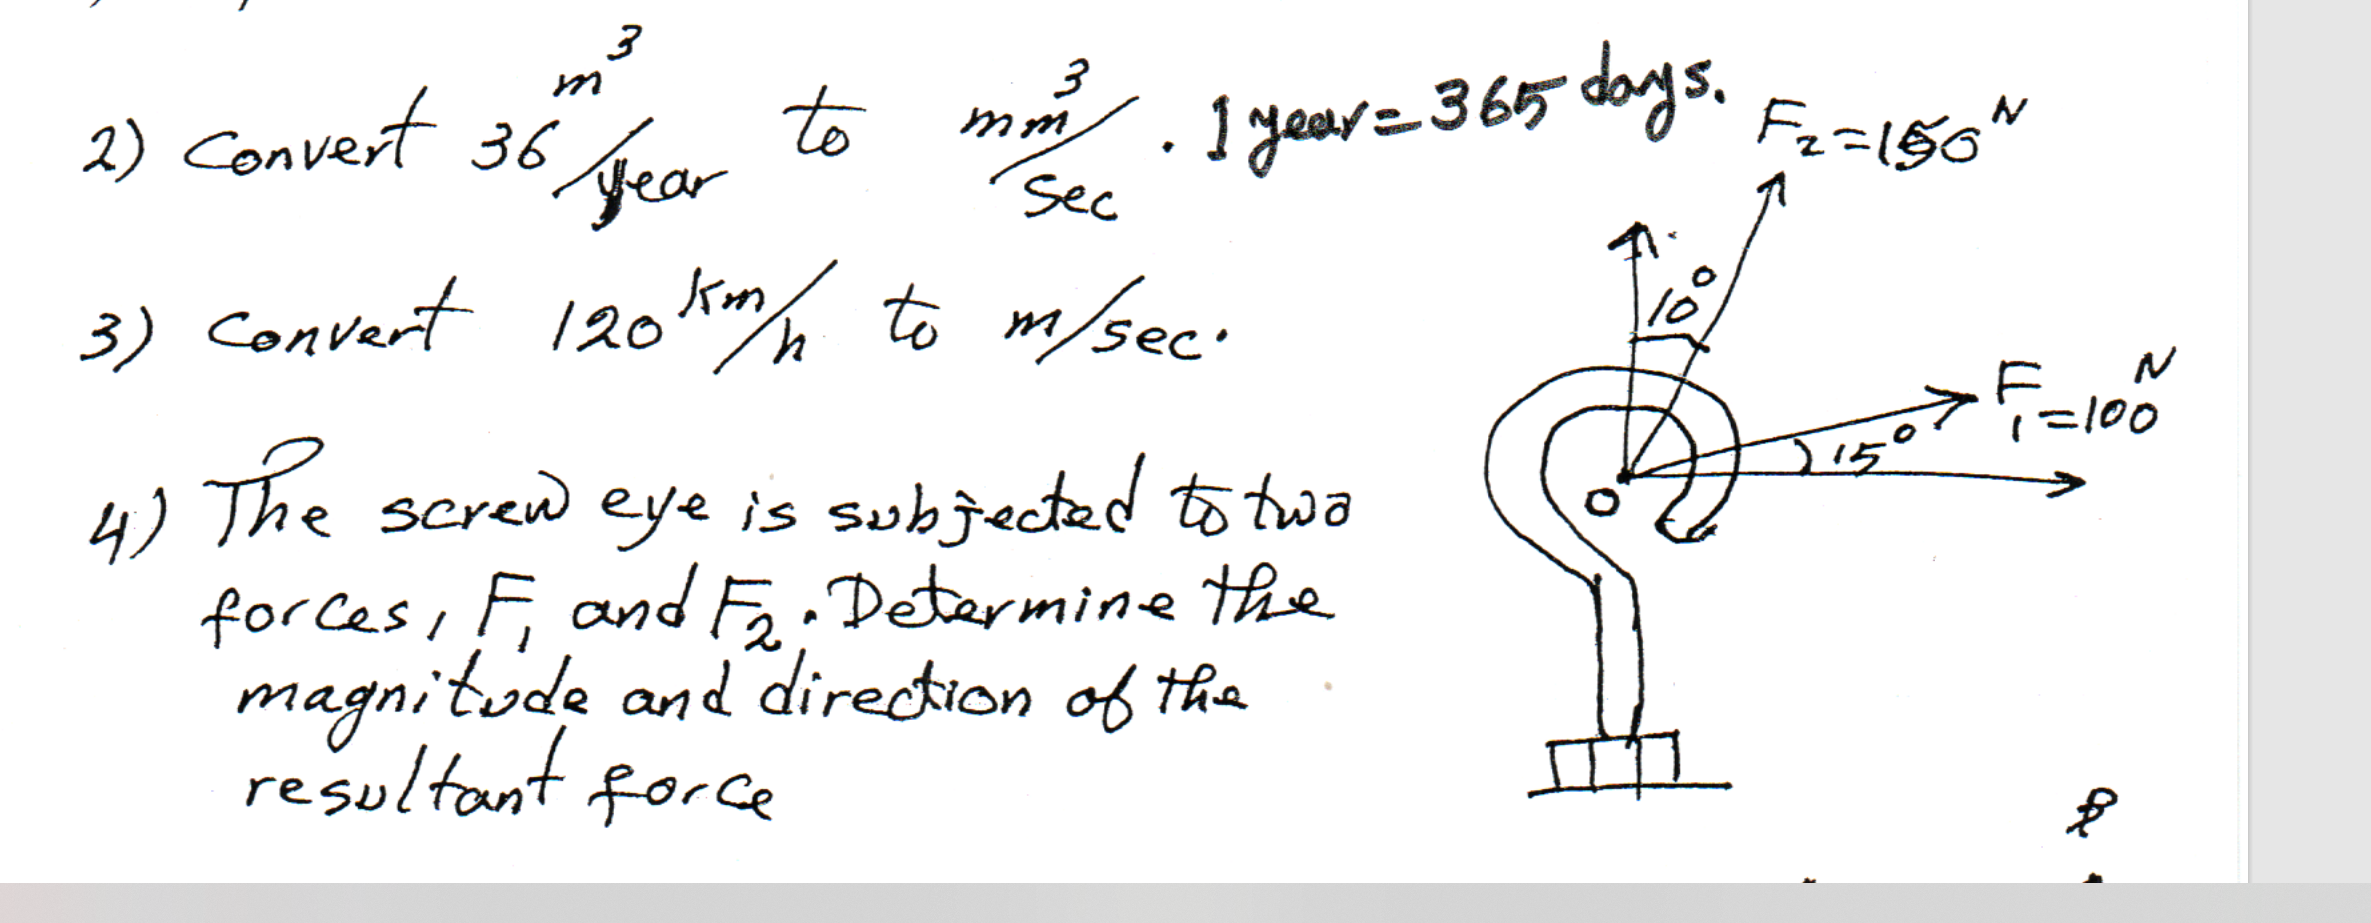 2) Convert 36 m³/year to mm³/sec . 1 year = 365 days.
3) Convert 120 km/h to m/sec.
4) The screw eye is subjected to two
forces, F₁ and F₂. Determine the
magnitude and direction of the
resultant force
F₂ = 150 N
10°
F₁ = 100 N
15°
O